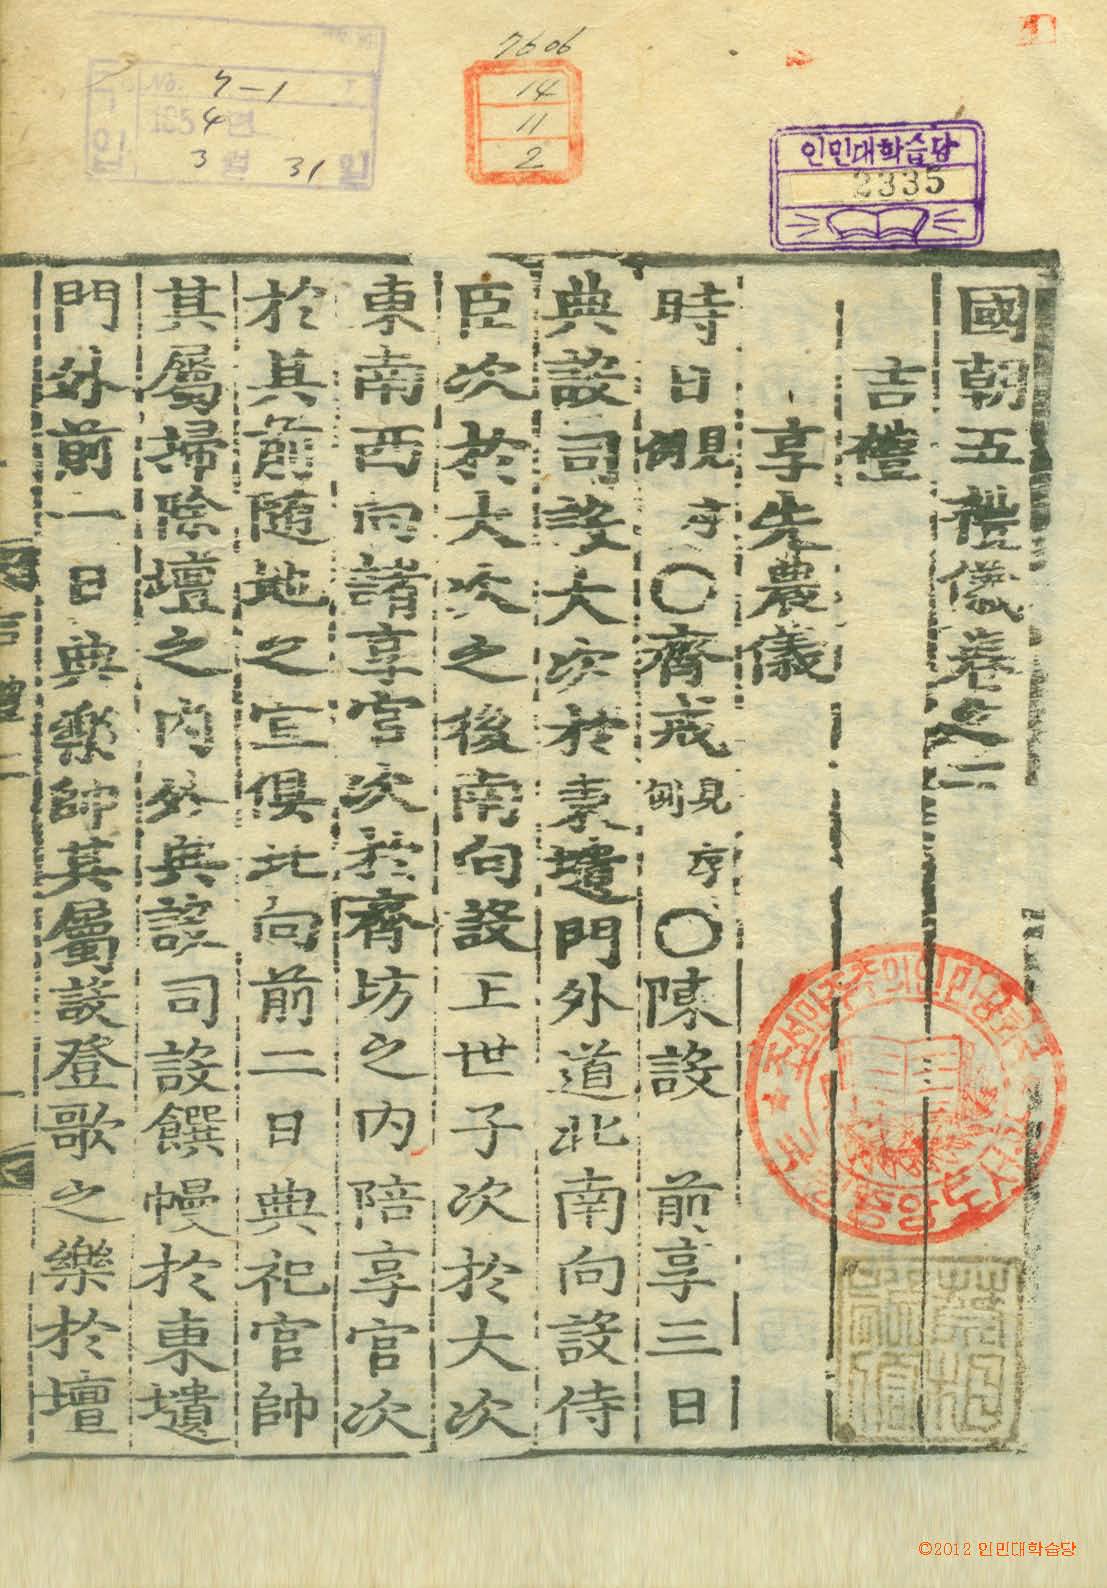 7606
14
11
2
No. 7-1
1954 년
3 월 31 일
인민대학습당
2335
國朝五禮儀卷之二
吉禮
享先農儀
時日見序例○齊戒見序例○陳設 前享三日
典設司設大次於東壝門外道北南向設侍
臣次於大次之後南向設王世子次於大次
東南西向諸享官次於齊坊之內陪享官次
於其前隨地之宜俱北向前二日典祀官帥
其屬掃除壇之內外典設司設饌幔於東壝
門外前一日典樂帥其屬設登歌之樂於壇
©2012 인민대학습당